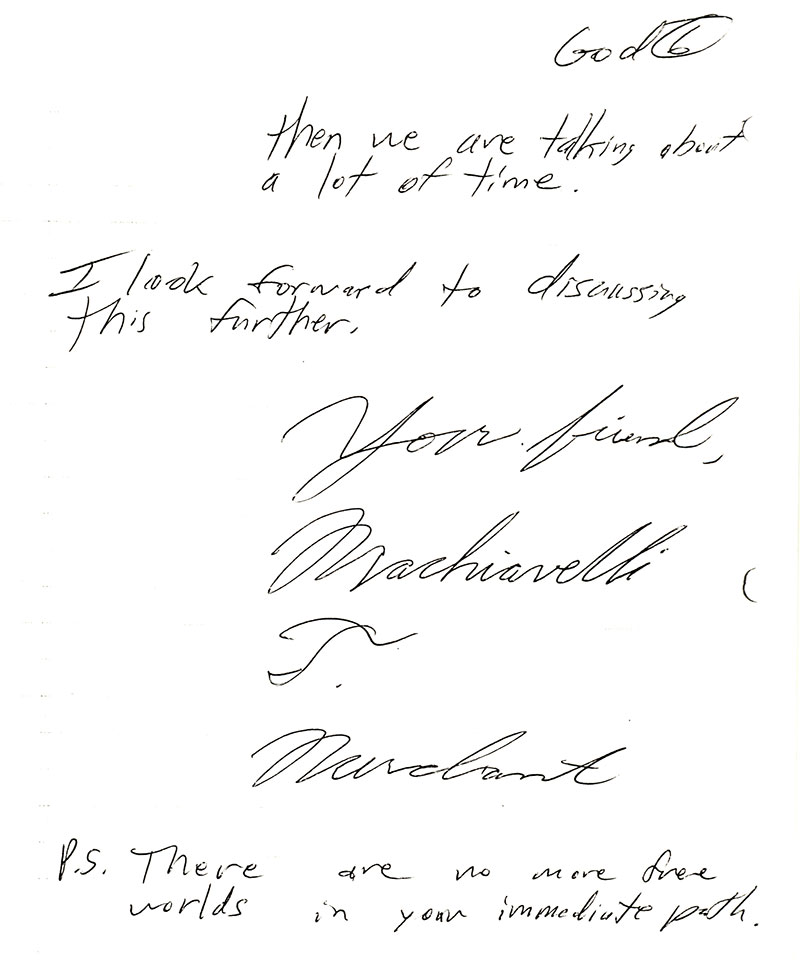 God 6
then we are talking about
a lot of time.
I look forward to discussing
this further.
Your friend,
Machiavelli
J.
Merchant
P.S. There are no more free
worlds in your immediate path.